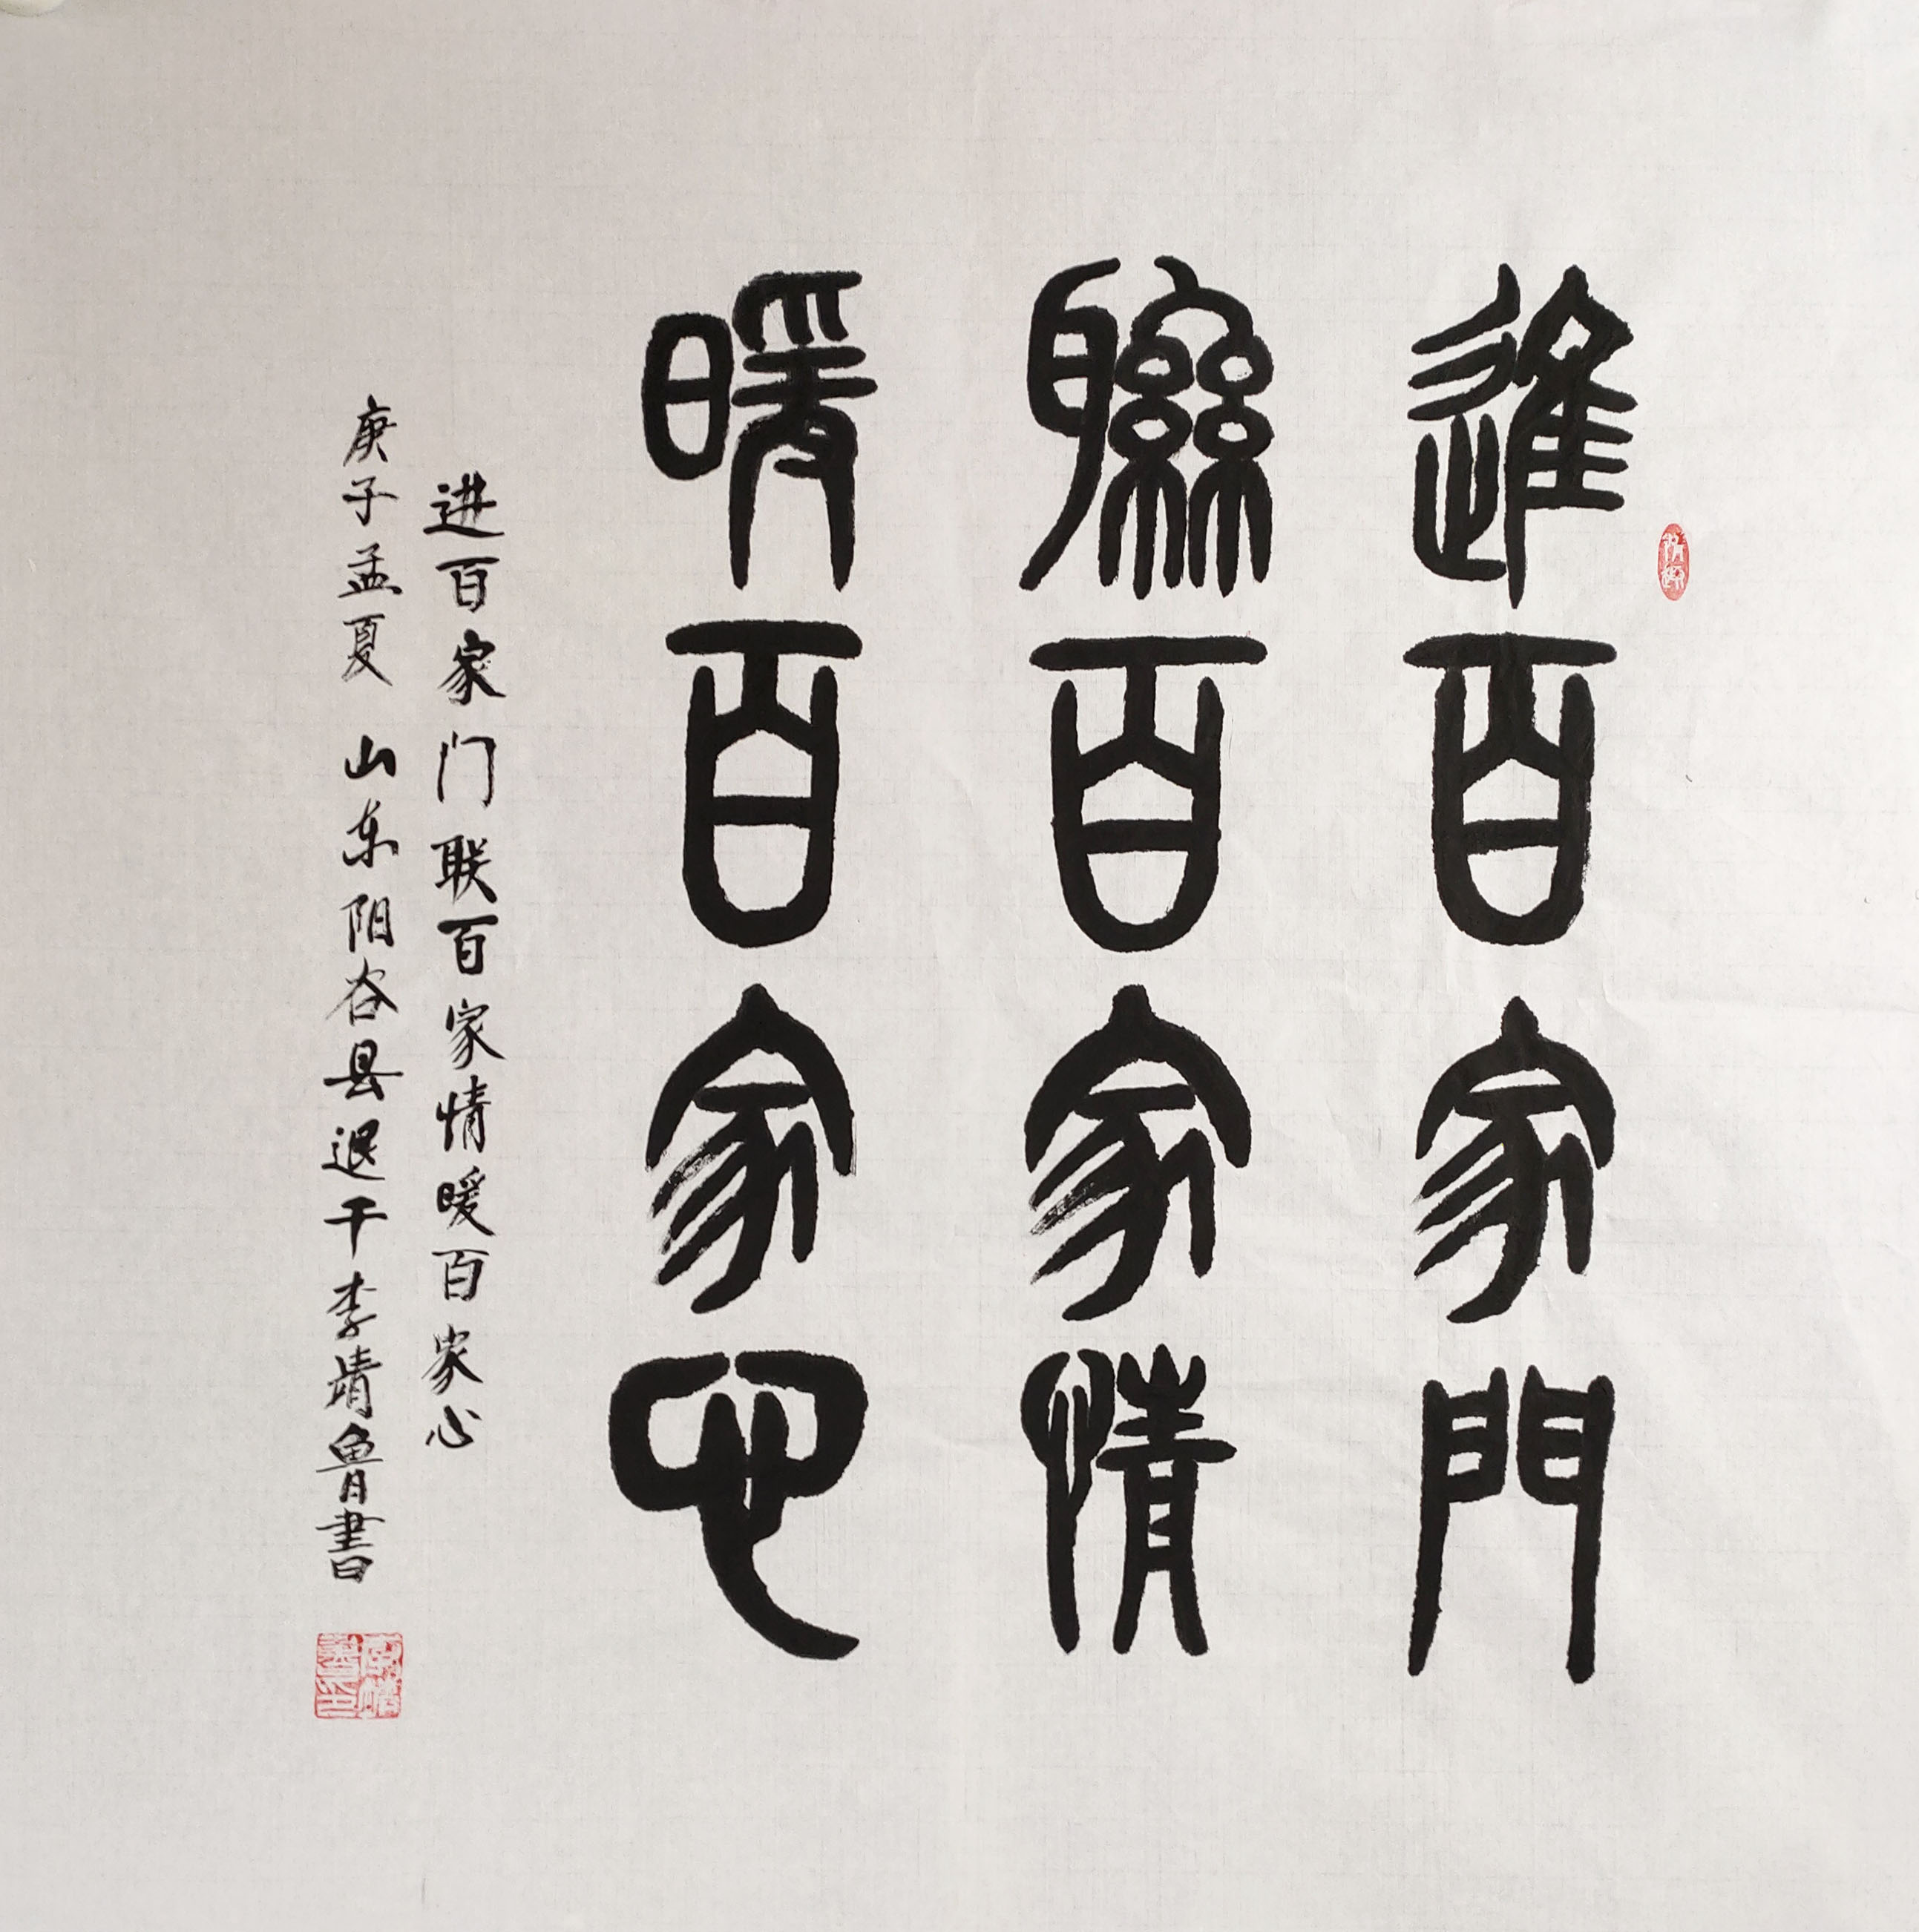 進百家門
聯百家情
暖百家心
进百家门联百家情暖百家心
庚子孟夏 山东阳谷县退干李靖魯書